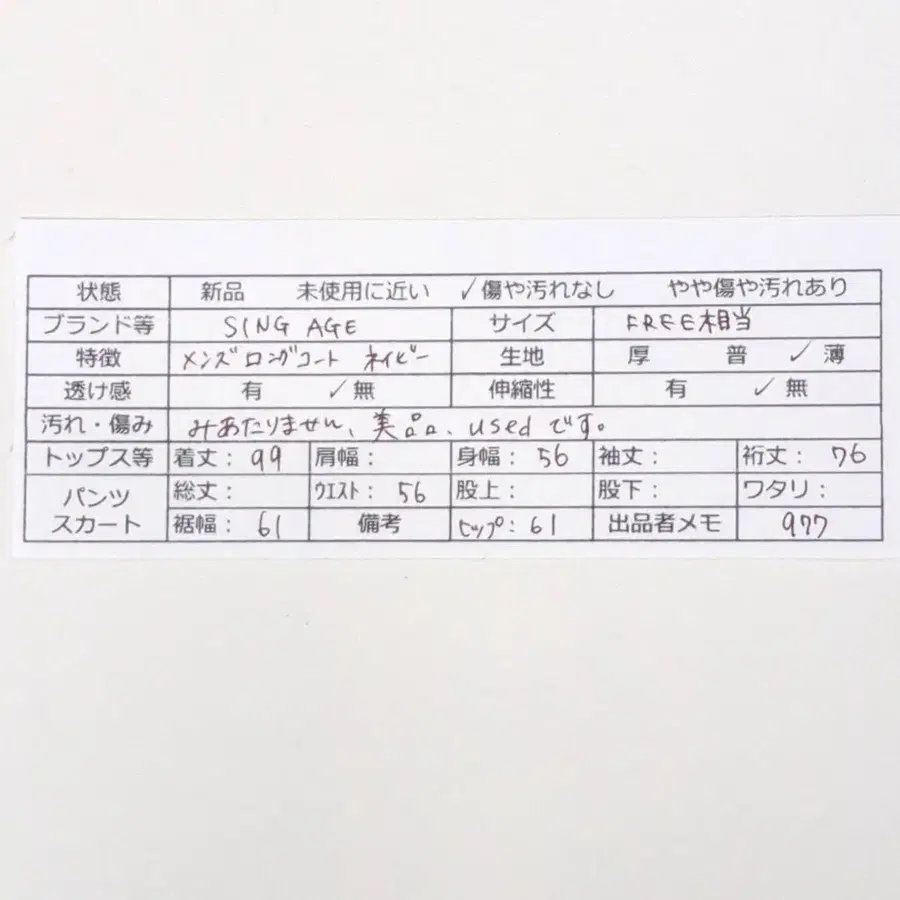 状態 新品 未使用に近い ✓傷や汚れなし やや傷や汚れあり
ブランド等 SING AGE サイズ FREE相当
特徴 メンズロングコート ネイビー 生地 厚 普 ✓薄
透け感 有 ✓無 伸縮性 有 ✓無
汚れ・傷み みあたりません、美品、usedです。
トップス等 着丈：99 肩幅： 身幅：56 袖丈： 裄丈：76
パンツ 総丈： ウエスト：56 股上： 股下： ワタリ：
スカート 裾幅：61 備考 ヒップ：61 出品者メモ 977